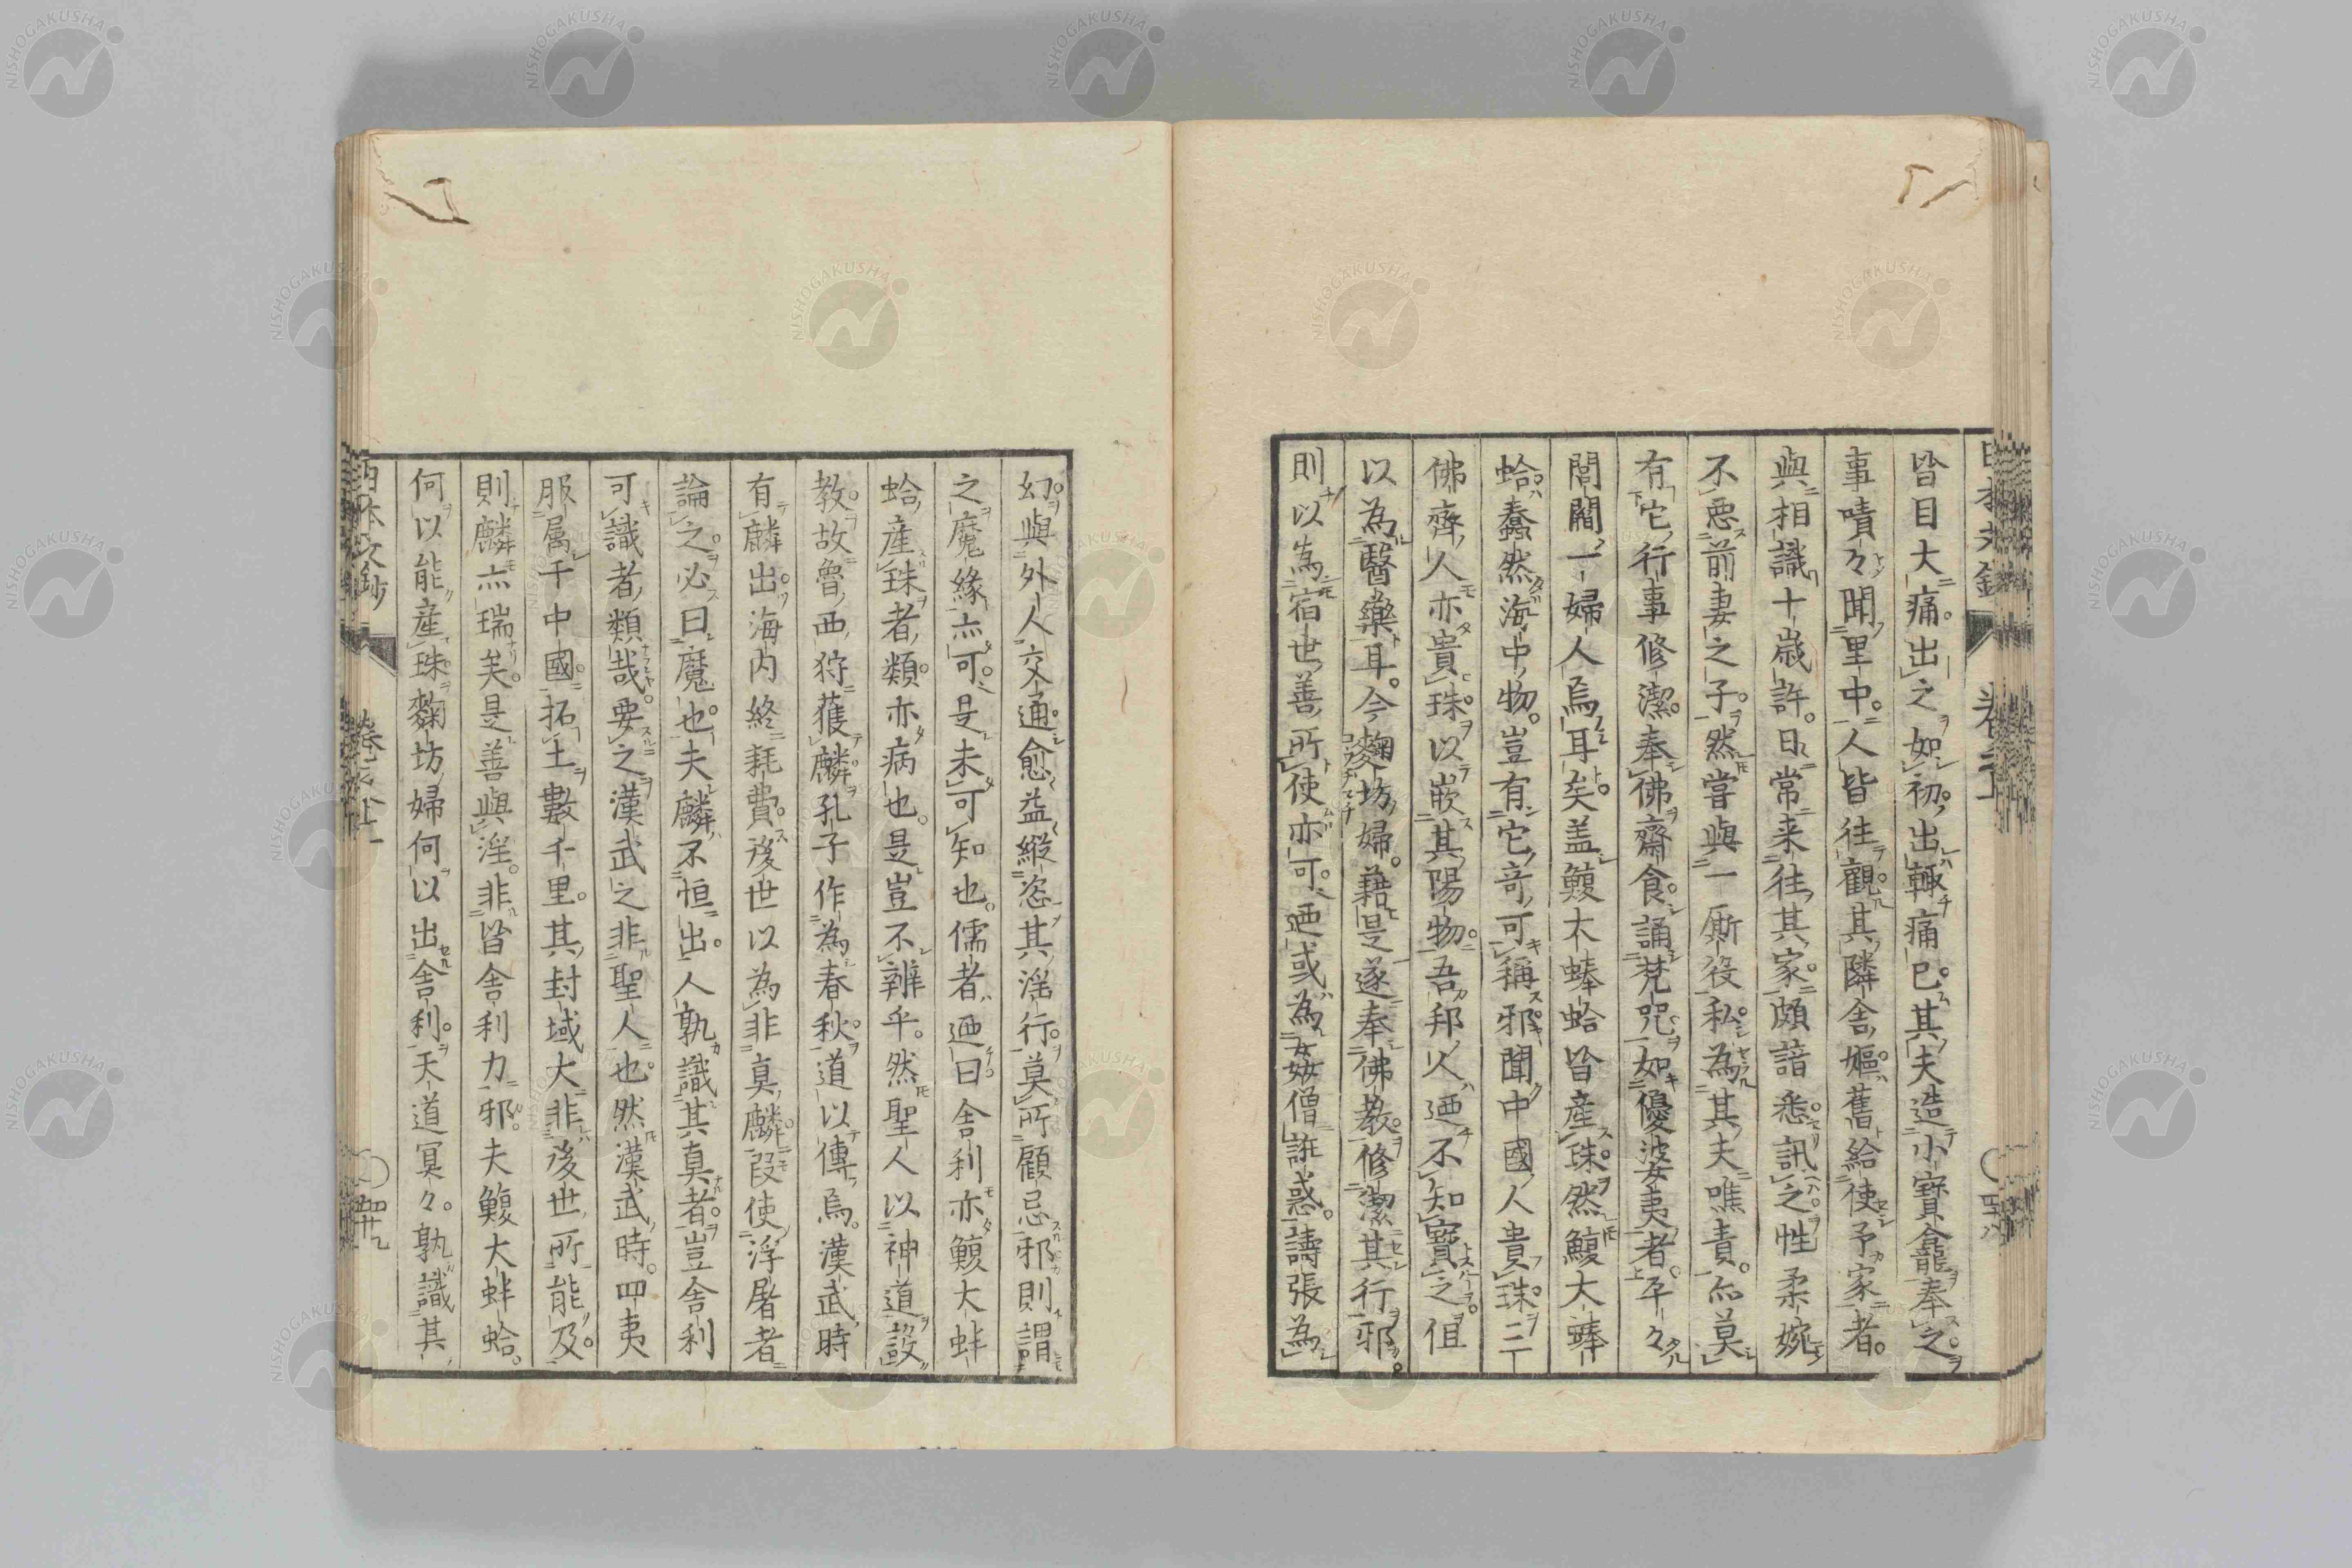 皆目大痛出之如初出輙痛已其夫造小寶龕奉之
事嘖々聞里中人皆往觀其隣舎嫗舊給使予家者
與相識十歳許日常来往其家頗諳悉訊之性柔婉
不惡前妻之子然嘗與一厮役私為其夫噍責亦莫
有它行事修潔奉佛齋食誦梵咒如優婆夷者平々
閭閻一婦人烏耳矣盖鰒大蜯蛤皆産珠然鰒大蜯
蛤蠢然海中物豈有它竒可稱邪聞中國人貴珠二
佛齊人亦貴珠以嵌其陽物吾邦人迺不知寶之但
以為醫藥耳今麴坊婦藉是遂奉佛教修潔其行邪
則以為宿世善所使亦可迺或為姦僧誑惑譸張為
幻與外人交通愈益縱恣其淫行莫所顧忌邪則謂
之魔緣亦可是未可知也儒者迺曰舎利亦鰒大蚌
蛤産珠者類亦病也是豈不辨乎然聖人以神道設
教故魯西狩獲麟孔子作為春秋道以傳焉漢武時
有麟出海内終耗費後世以為非真麟叚使浮屠者
論之必曰魔也夫麟不恒出人孰識其真者豈舎利
可識者類哉要之漢武之非聖人也然漢武時四夷
服属于中國拓土數千里其封域大非後世所能及
則麟亦瑞矣是善與淫非皆舎利力邪夫鰒大蚌蛤
何以能産珠麴坊婦何以出舎利天道冥々孰識其
NISHOGAKUSHA